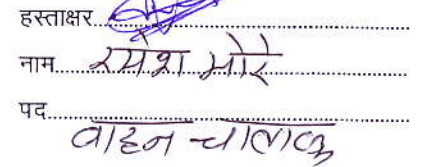 हस्ताक्षर
नाम रमेश मोरे
पद
वाहन चालक